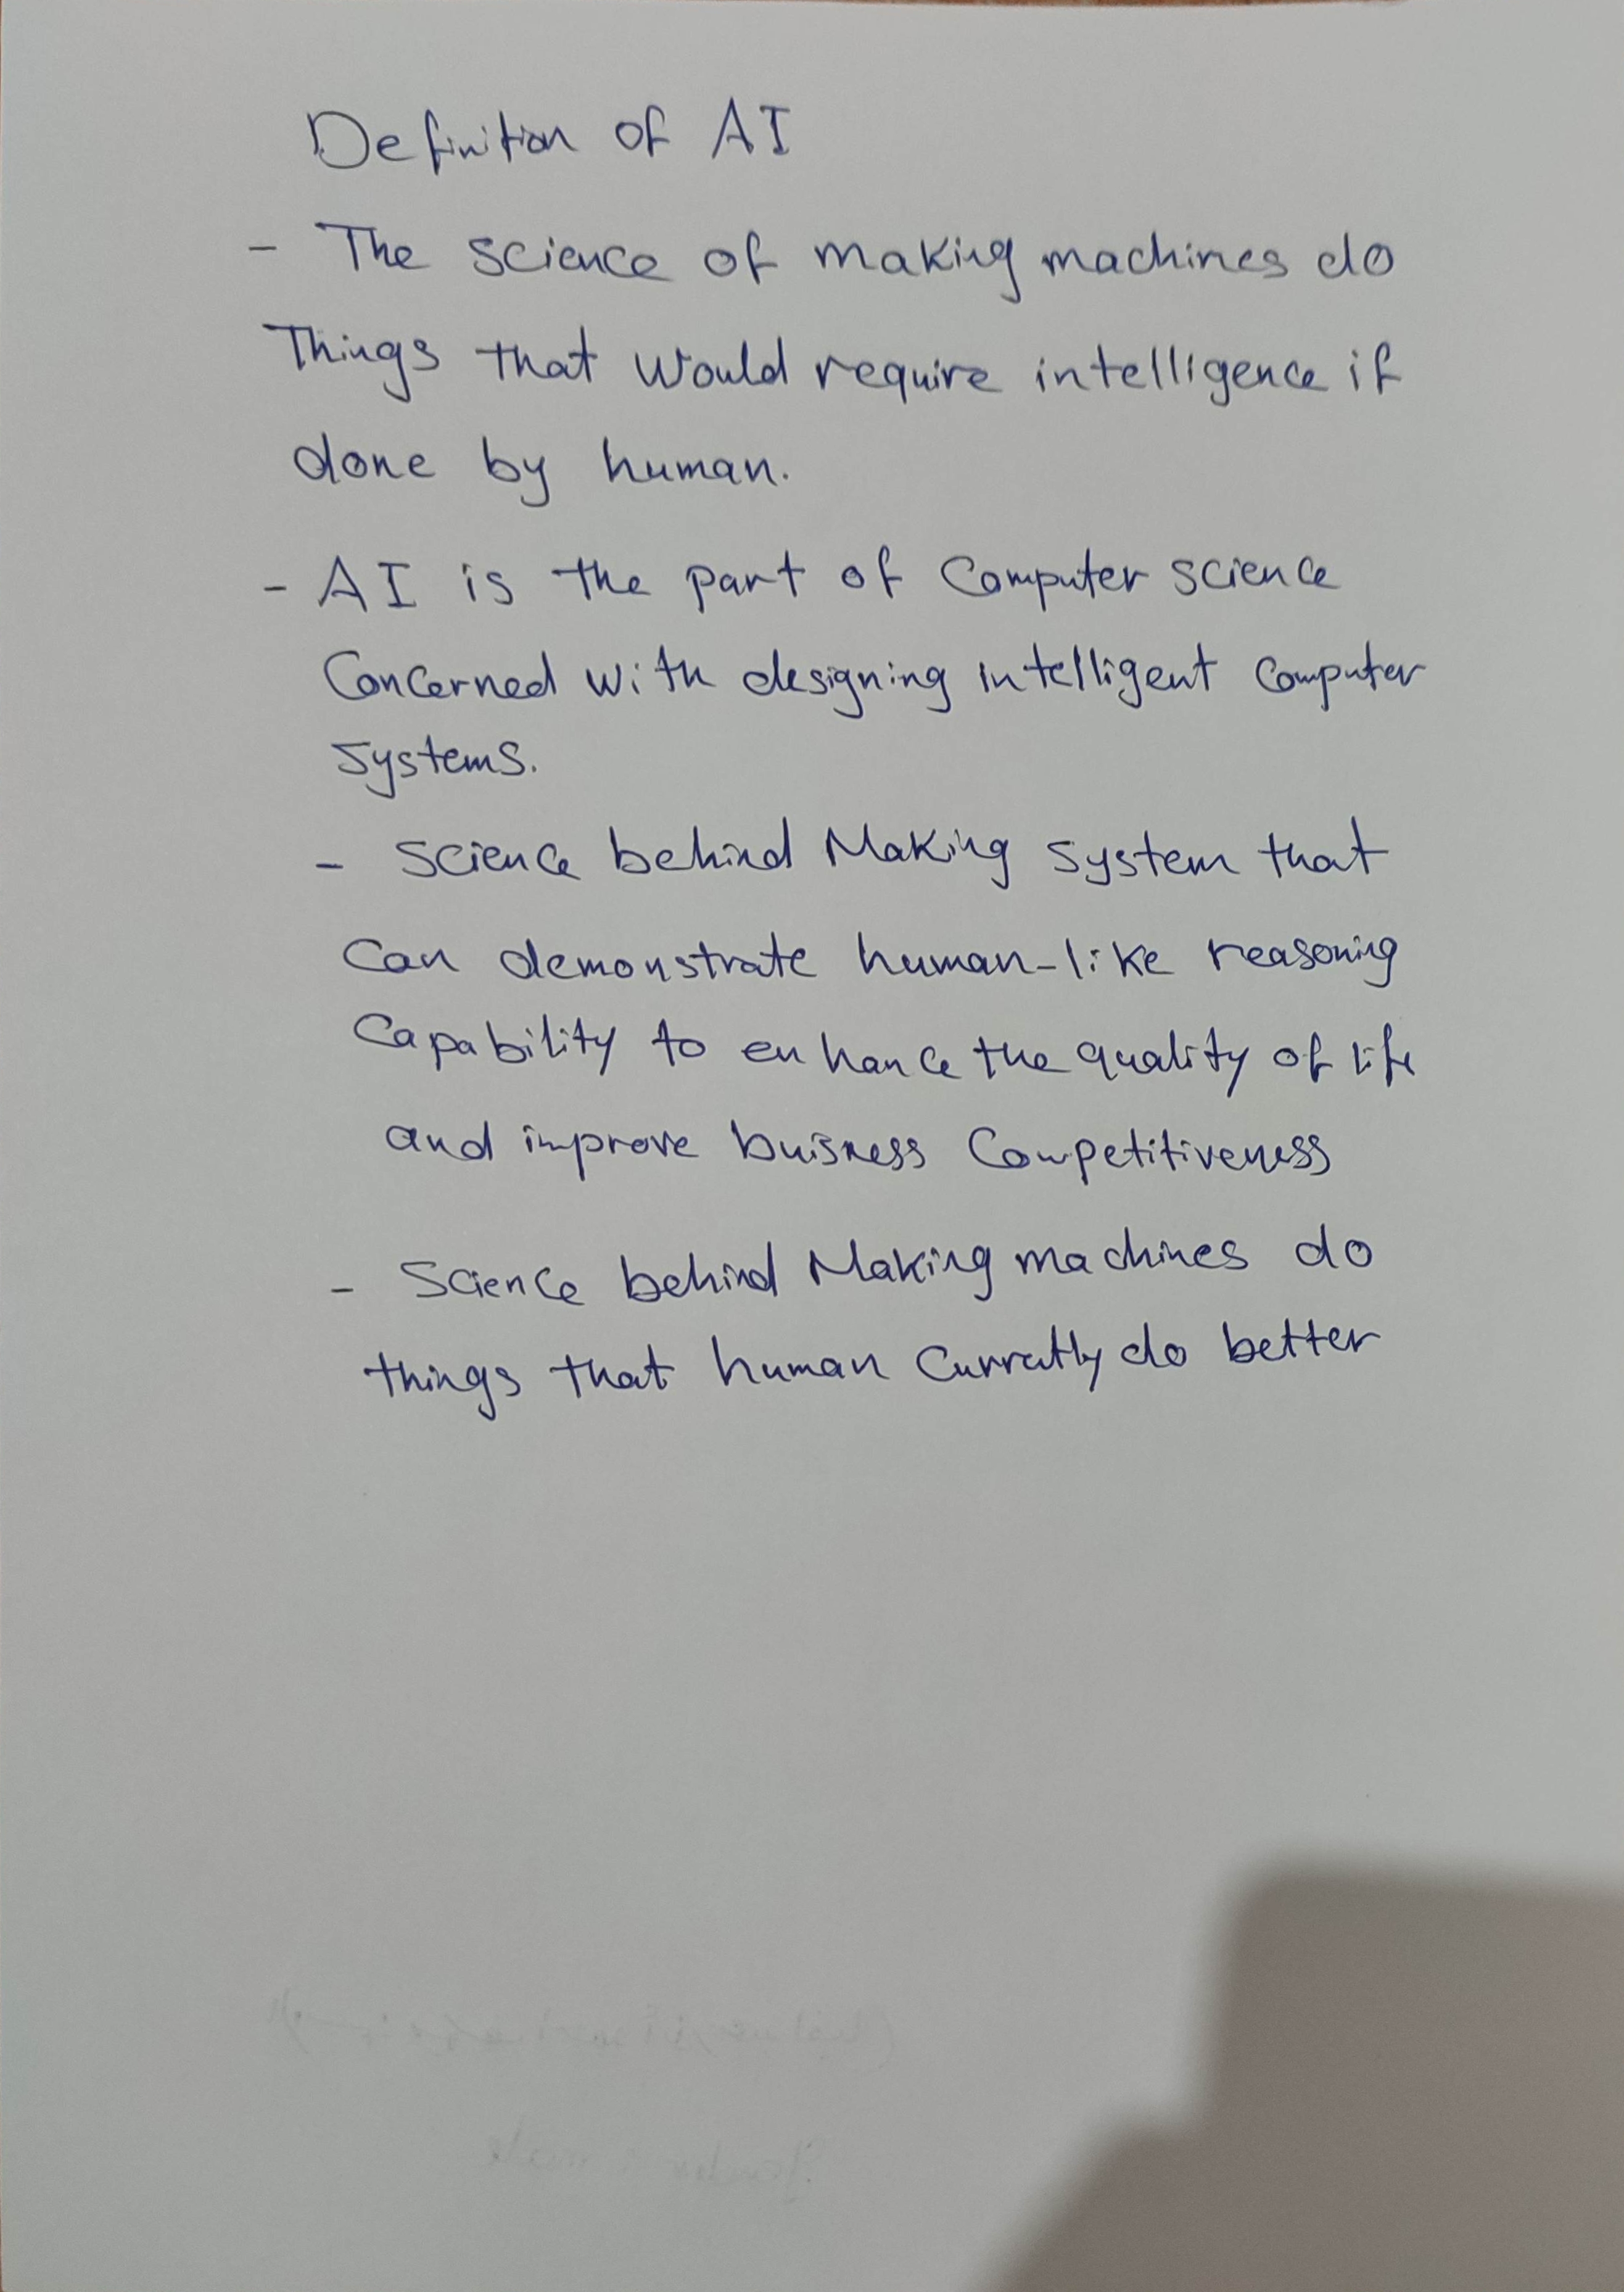 Definition of AI
- The science of making machines do
Things that would require intelligence if
done by human.
- AI is the part of Computer science
Concerned with designing intelligent Computer
Systems.
- Science behind Making system that
Can demonstrate human-like reasoning
Capability to enhance the quality of life
and improve buisness Competitiveness
- Science behind Making machines do
things that human Currently do better